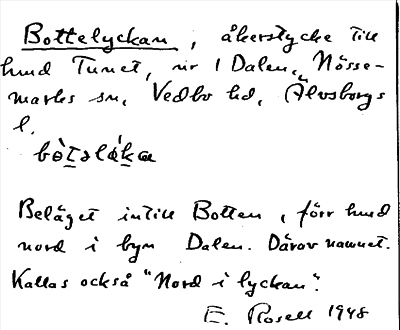 Bottelyckan, åkerstycke till
hmd Tunet, nr 1 Dalen, Nösse-
marks sn, Vedbo hd, Älvsborgs
l.
Beläget intill Botten, förr hmd
nord i byn Dalen. Därav namnet.
Kallas också "Nord i lyckan".
E. Rosell 1948